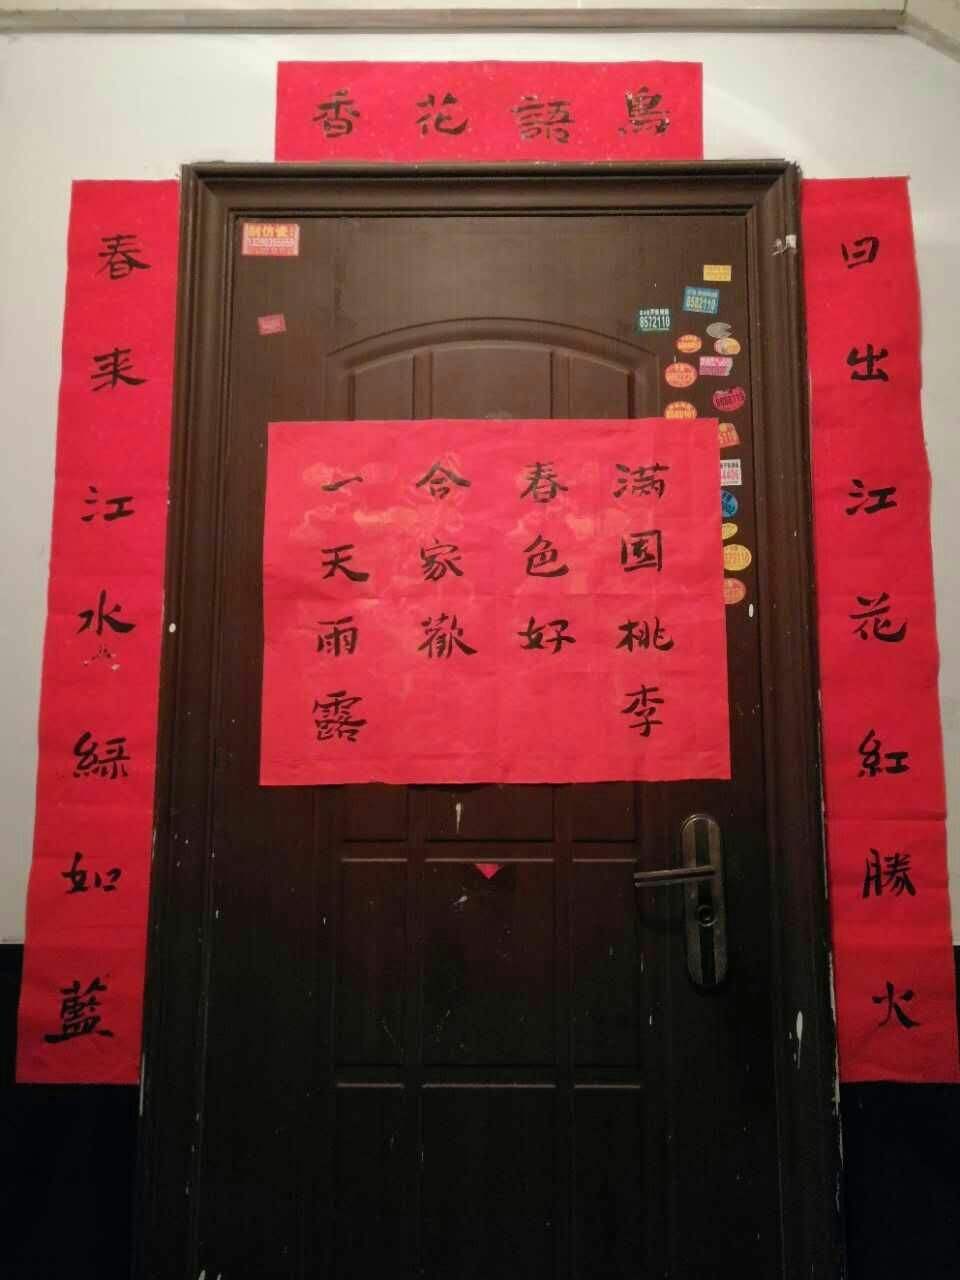 鳥語花香
日出江花紅勝火
春来江水緑如藍
满园桃李
春色好
合家歡
一天雨露
刮仿瓷
8582110
8572110